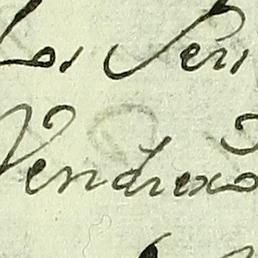 Los Seri
Vendrexo